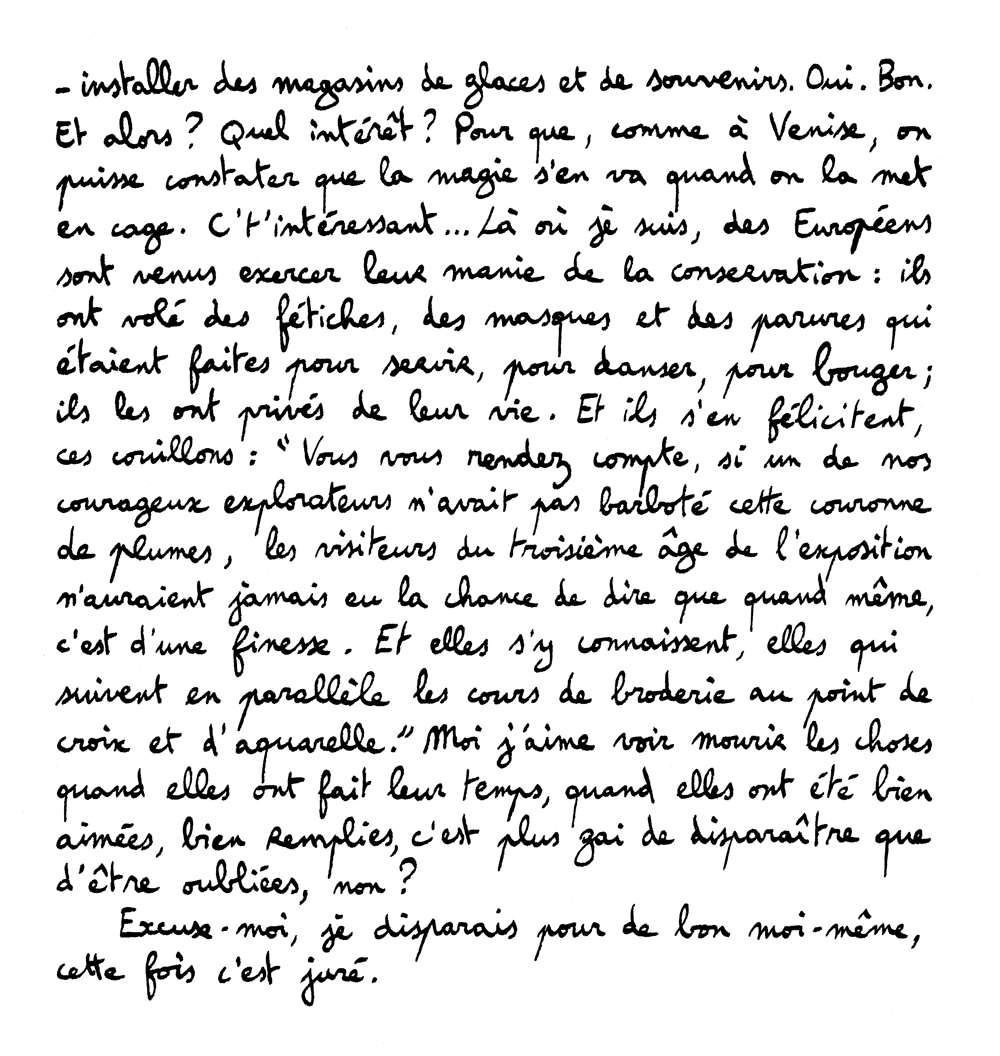 - installer des magasins de glaces et de souvenirs. Oui. Bon.
Et alors ? Quel intérêt ? Pour que, comme à Venise, on
puisse constater que la magie s'en va quand on la met
en cage. C't'intéressant... Là où je suis, des Européens
sont venus exercer leur manie de la conservation : ils
ont volé des fétiches, des masques et des parures qui
étaient faites pour servir, pour danser, pour bouger ;
ils les ont privés de leur vie. Et ils s'en félicitent,
ces couillons : “ Vous vous rendez compte, si un de nos
courageux explorateurs n'avait pas barboté cette couronne
de plumes, les visiteurs du troisième âge de l'exposition
n'auraient jamais eu la chance de dire que quand même,
c'est d'une finesse. Et elles s'y connaissent, elles qui
suivent en parallèle les cours de broderie au point de
croix et d'aquarelle.” Moi j'aime voir mourir les choses
quand elles ont fait leur temps, quand elles ont été bien
aimées, bien remplies, c'est plus gai de disparaître que
d'être oubliées, non ?
Excuse-moi, je disparais pour de bon moi-même,
cette fois c'est juré.